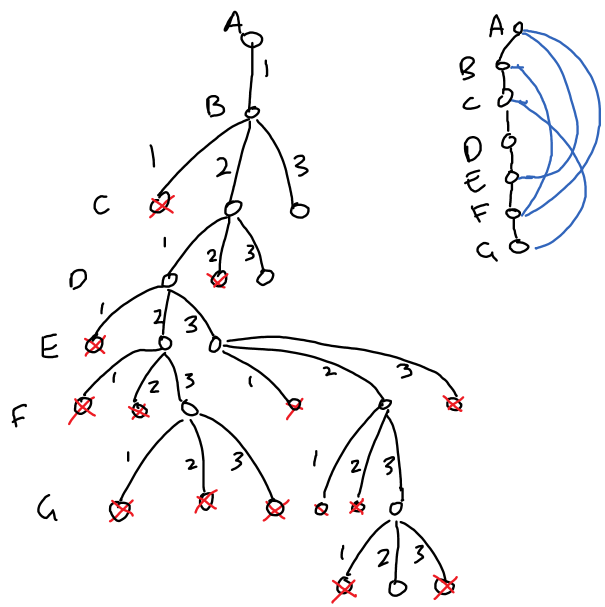 A
1
B
1 2 3
C
1 2 3
D
1 2 3
E
1 2 3 1 2 3
F
1 2 3 1 2 3
G
1 2 3
A
B
C
D
E
F
G